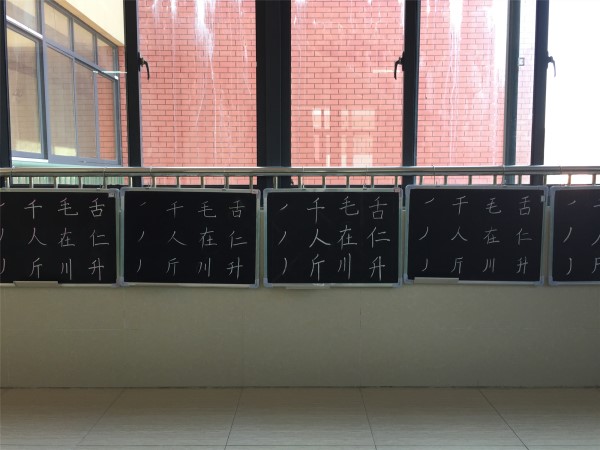 ㇒ 千 毛 舌
丿 人 在 仁
丿 斤 川 升
㇒ 千 毛 舌
丿 人 在 仁
丿 斤 川 升
㇒ 千 毛 舌
丿 人 在 仁
丿 斤 川 升
㇒ 千 毛 舌
丿 人 在 仁
丿 斤 川 升
㇒
丿
丿